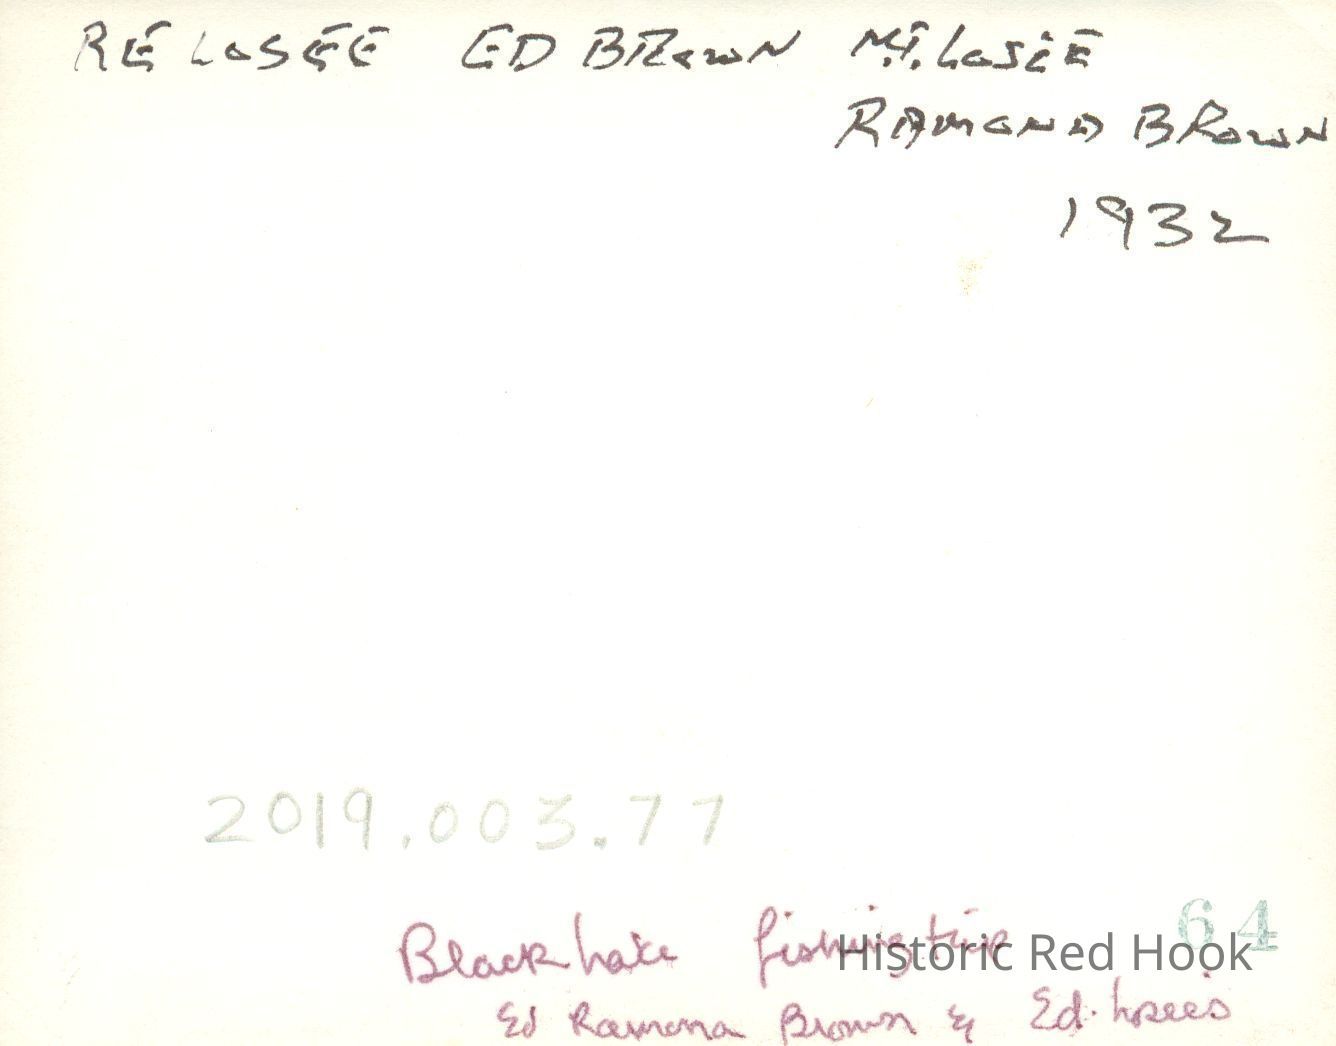 RE LOSEE ED BROWN M.T. LOSEE
RAMONA BROWN
1932
2019.003.77
64
Black Lake fishing trip
Historic Red Hook
Ed Ramona Brown & Ed. Losee's